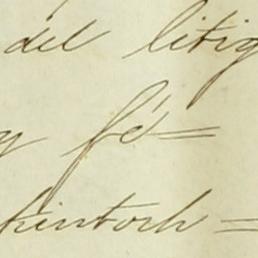 del litig
y fé =
kintosh =